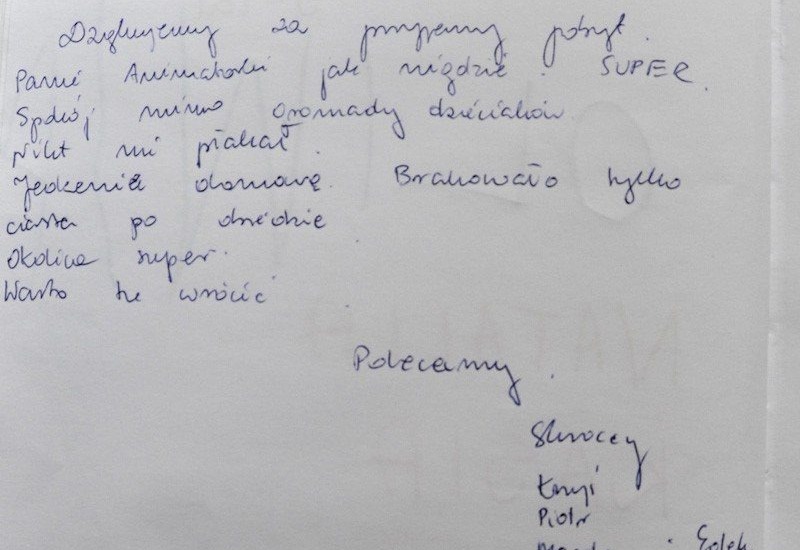 Dziękujemy za przyjemny pobyt.
Panie Animatorki jak nigdzie. SUPER.
Spokój mimo gromady dzieciaków
Nikt nie płakał.
Jedzenie domowe. Brakowało tylko
ciasta po obiedzie
Okolica super.
Warto tu wrócić
Polecamy.
Piotr